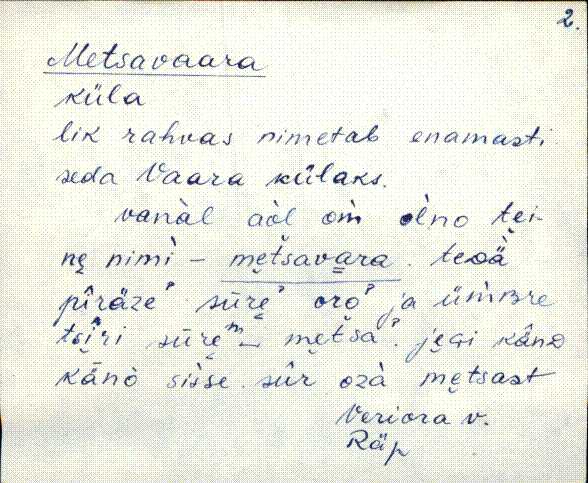 2.
Metsavaara
küla
lik rahvas nimetab enamasti
seda Vaara külaks.
vanàl aòl om̀ olno tęi-
nę nimì - mętsavara. teɢä
pîräze² sūrę² orǫ² ja üm̀ʙre
tsîri sūrę m mętsa². jęɢi kāno
kānò sìsse. sûr ozà mętsast
Veriora v.
Räp